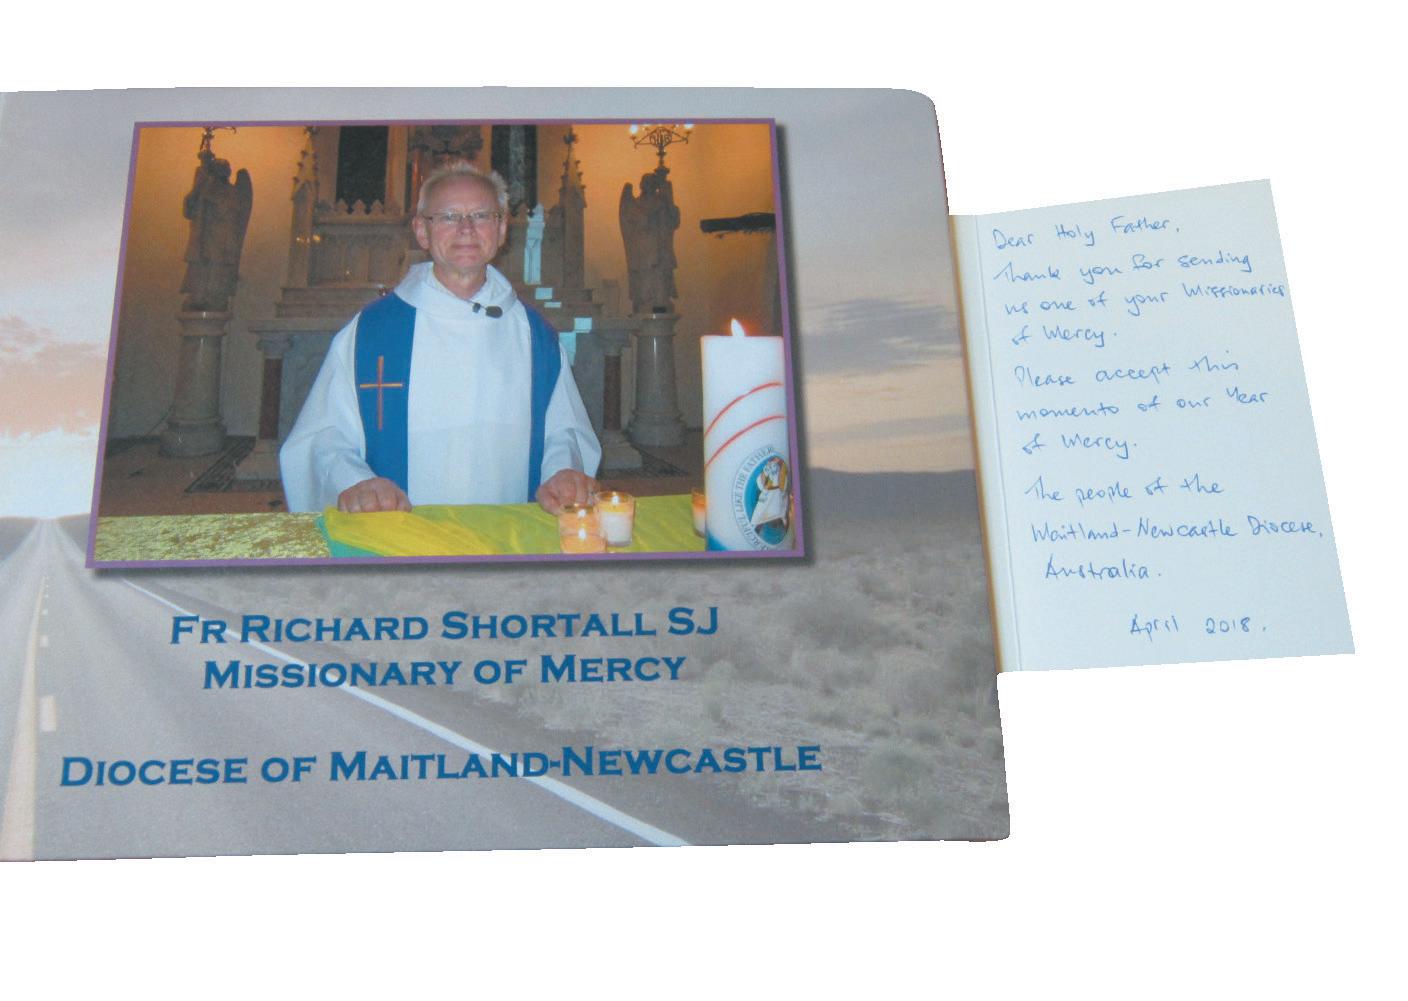 FR RICHARD SHORTALL SJ
MISSIONARY OF MERCY
DIOCESE OF MAITLAND-NEWCASTLE
LIKE THE FATHER
Dear Holy Father,
Thank you for sending
us one of your Missionaries
of Mercy.
Please accept this
momento of our Year
of Mercy.
The people of the
Maitland-Newcastle Diocese,
Australia.
April 2018.